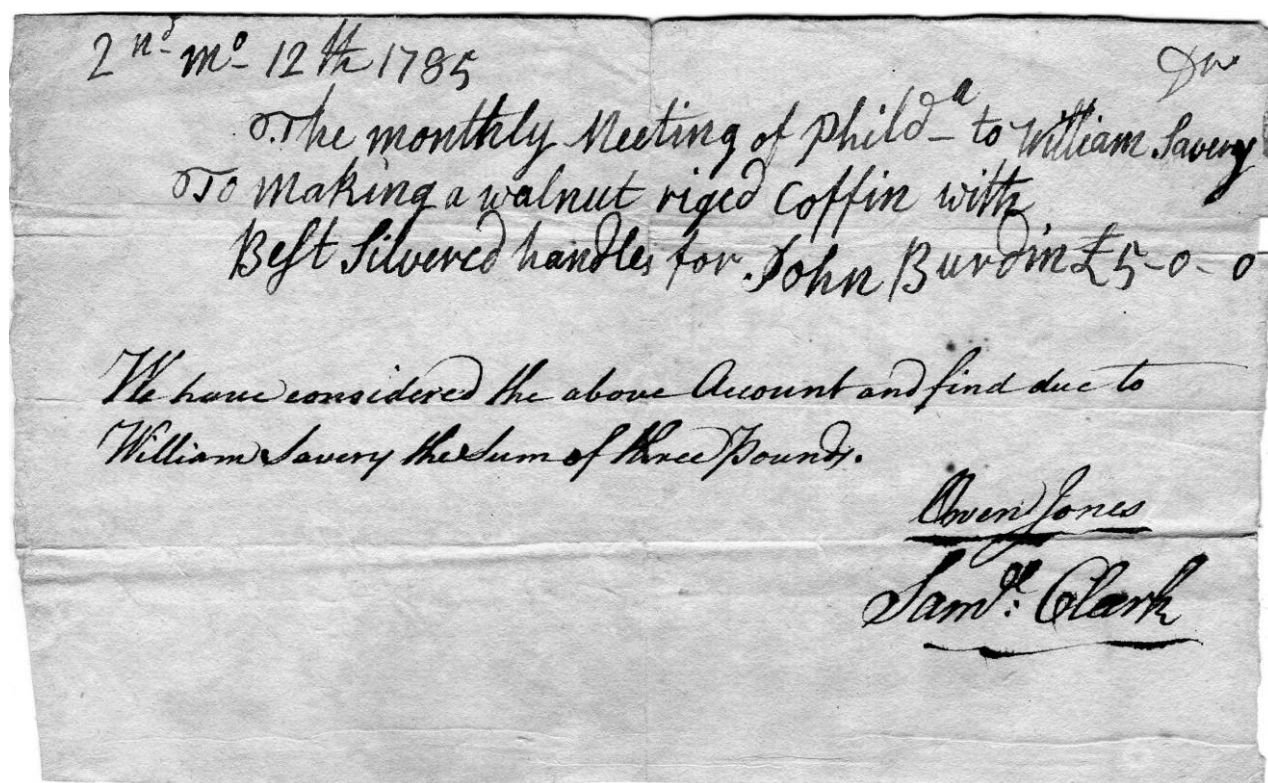 2nd mo 12th 1785
Dr
The monthly Meeting of Philda to William Savery
To making a walnut riged Coffin with
Best Silvered handles for John Burdin £5-0-0
We have considered the above Account and find due to
William Savery the Sum of three Pounds.
Owen Jones
Saml: Clark